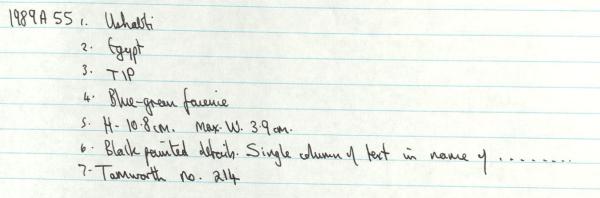 1989A 55 1. Ushabti
2. Egypt
3. TIP
4. Blue-green faience
5. H- 10.8cm. Max. W. 3.9cm.
6. Black painted details. Single column of text in name of ........
7- Tamworth no. 214